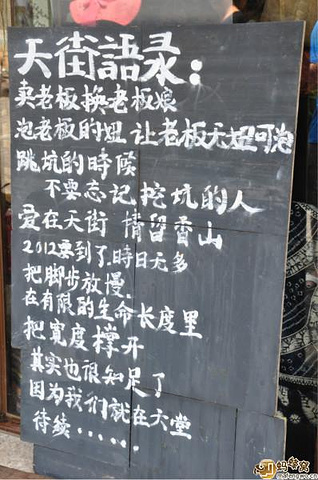 天街語录：
卖老板换老板娘
泡老板的妞 让老板无妞可泡
跳坑的時候
不要忘记挖坑的人
爱在天街 情留香山
2012要到了.時日无多
把脚步放慢.
在有限的生命长度里
把寬度撑开
其实也很知足了
因为我们就在天堂
待续······
蚂蜂窝
mafengwo.cn